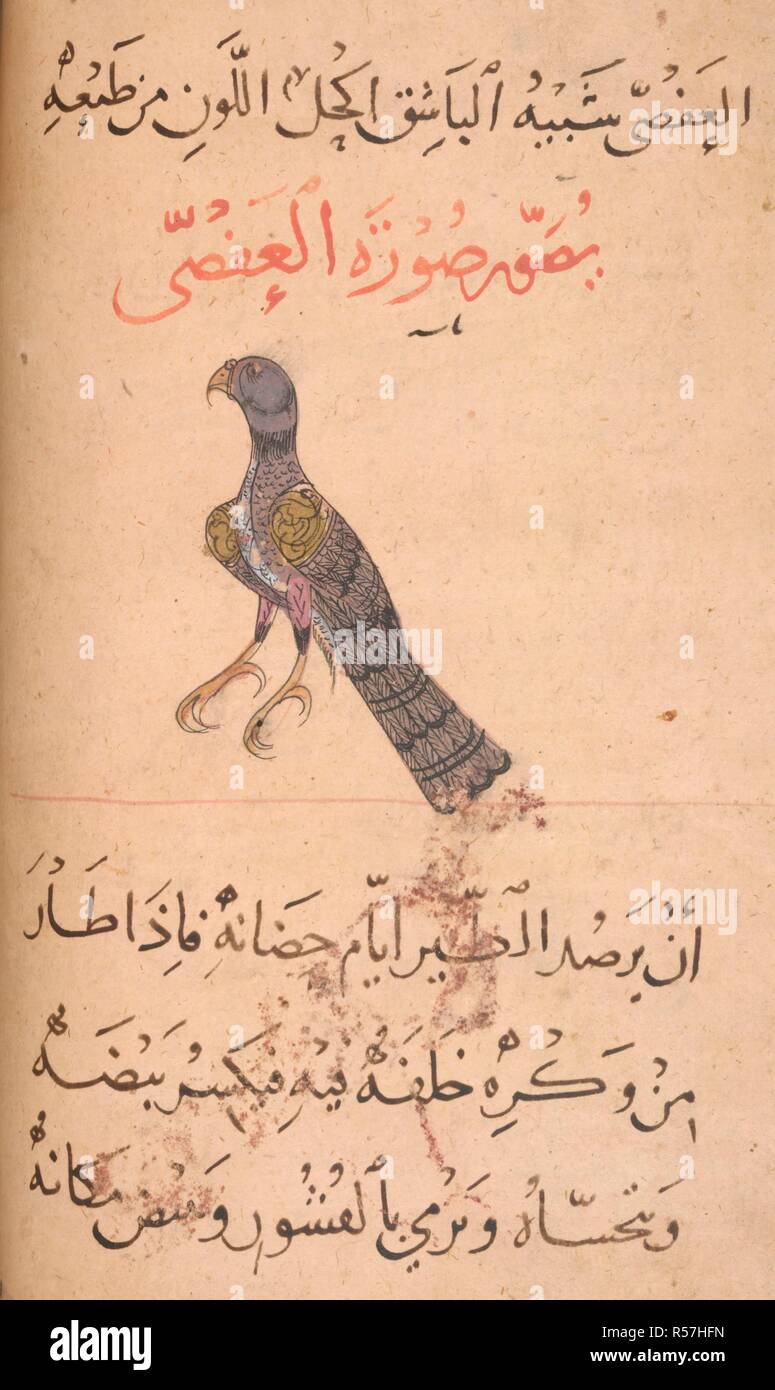 العفصي شبيه الباشق اكحل اللون من طبعه
صورة العفصي
أن يرصد الطير ايام حضانه فاذا طار
من وكره خلفه فيه فيكسر بيضه
ويتحساه ويرمي بالقشور ويبيض مكانه
alamy
Image ID: R57HFN
www.alamy.com